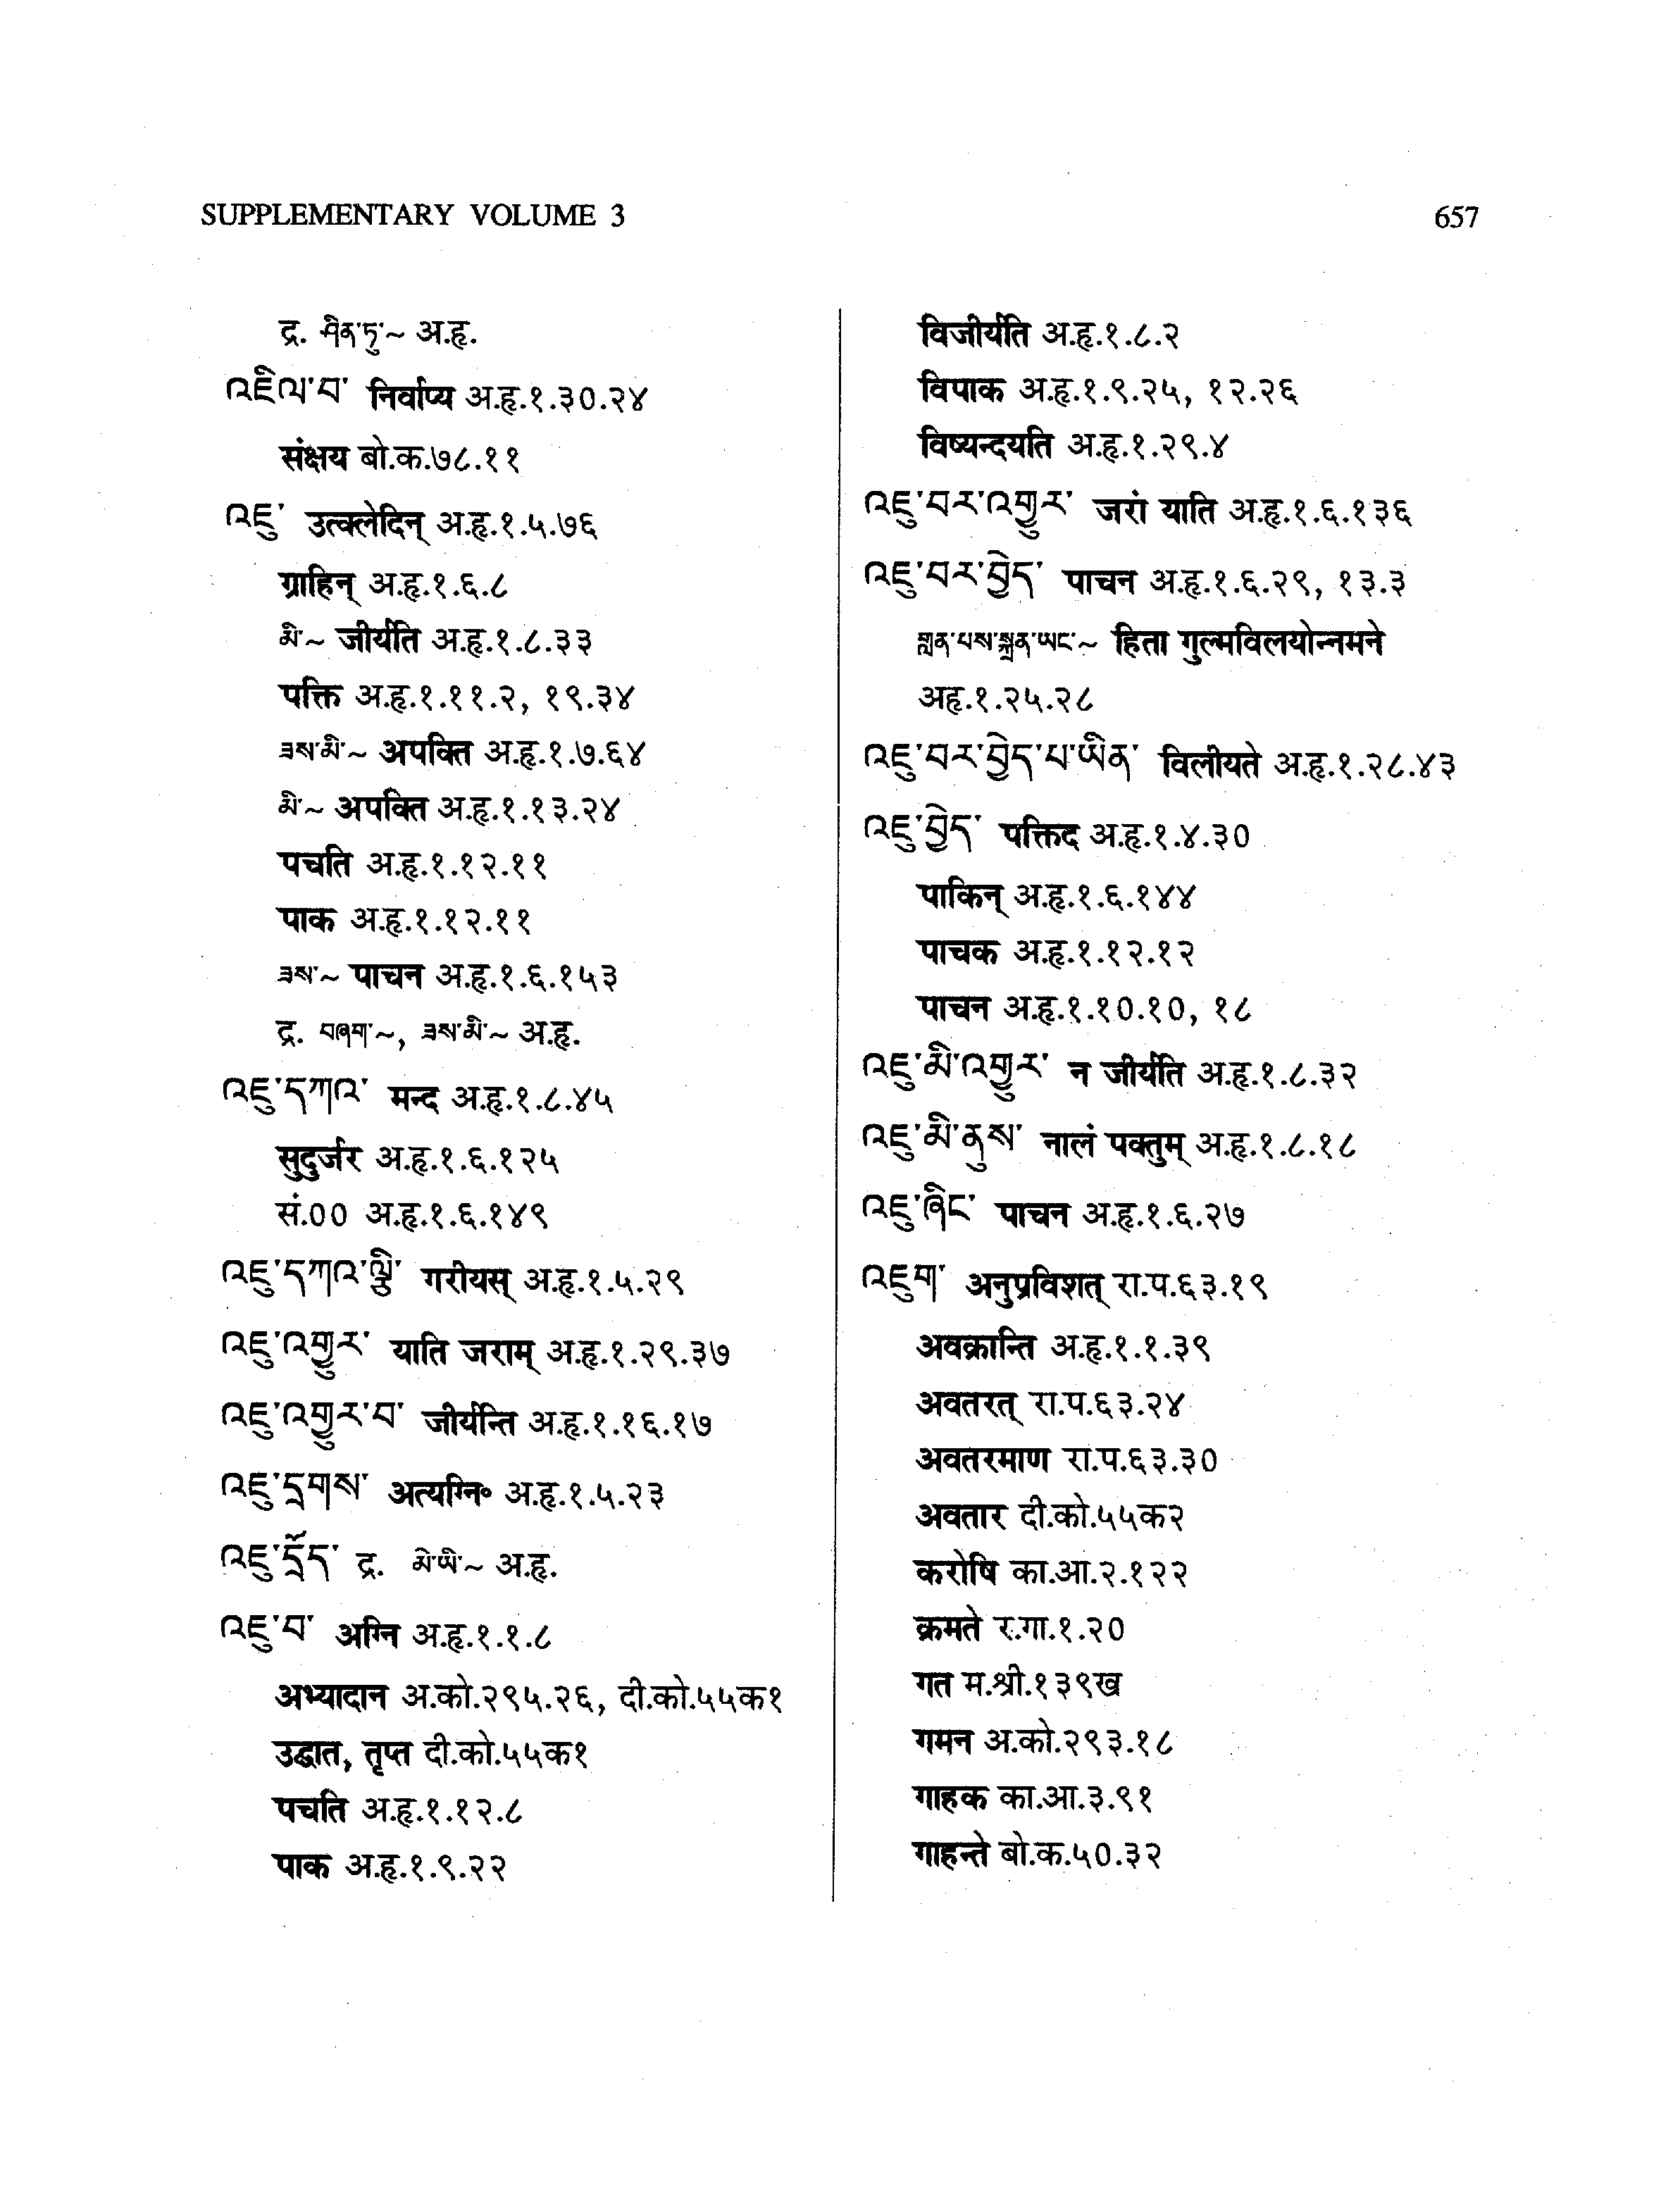 SUPPLEMENTARY VOLUME 3
657
द्र. ཤིན་ཏུ་~ अ.हृ.
འཇིལ་བ་ निर्वाप्य अ.हृ.१.३०.२४
संक्षय बो.क.७८.११
འཇུ་ उत्क्लेदिन् अ.हृ.१.५.७६
ग्राहिन् अ.हृ.१.६.८
མི་~ जीर्यति अ.हृ.१.८.३३
पक्ति अ.हृ.१.११.२, १९.३४
ཟས་མི་~ अपक्ति अ.हृ.१.७.६४
མི་~ अपक्ति अ.हृ.१.१३.२४
पचति अ.हृ.१.१२.११
पाक अ.हृ.१.१२.११
ཟས་~ पाचन अ.हृ.१.६.१५३
द्र. བཞག་~, ཟས་མི་~ अ.हृ.
འཇུ་དཀའ་ मन्द अ.हृ.१.८.४५
सुदुर्जर अ.हृ.१.६.१२५
सं.00 अ.हृ.१.६.१४९
འཇུ་དཀའ་ལྕི་ गरीयस् अ.हृ.१.५.२९
འཇུ་འགྱུར་ याति जराम् अ.हृ.१.२९.३७
འཇུ་འགྱུར་བ་ जीर्यन्ति अ.हृ.१.१६.१७
འཇུ་དྲགས་ अत्यग्नि॰ अ.हृ.१.५.२३
འཇུ་དྲོད་ द्र. མེ་ཡི་~ अ.हृ.
འཇུ་བ་ अग्नि अ.हृ.१.१.८
अभ्यादान अ.को.२९५.२६, दी.को.५५क१
उद्घात, तृप्त दी.को.५५क१
पचति अ.हृ.१.१२.८
पाक अ.हृ.१.९.२२
विजीर्यति अ.हृ.१.८.२
विपाक अ.हृ.१.९.२५, १२.२६
विष्यन्दयति अ.हृ.१.२९.४
འཇུ་བར་འགྱུར་ जरां याति अ.हृ.१.६.१३६
འཇུ་བར་བྱེད་ पाचन अ.हृ.१.६.२९, १३.३
གླན་པས་སྐྲན་ཡང་~ हिता गुल्मविलयोन्नमने
अहृ.१.२५.२८
འཇུ་བར་བྱེད་པ་ཡིན་ विलीयते अ.हृ.१.२८.४३
འཇུ་བྱེད་ पक्तिद अ.हृ.१.४.३०
पाकिन् अ.हृ.१.६.१४४
पाचक अ.हृ.१.१२.१२
पाचन अ.हृ.१.१०.१०, १८
འཇུ་མི་འགྱུར་ न जीर्यति अ.हृ.१.८.३२
འཇུ་མི་ནུས་ नालं पक्तुम् अ.हृ.१.८.१८
འཇུ་ཞིང་ पाचन अ.हृ.१.६.२७
འཇུག་ अनुप्रविशत् रा.प.६३.१९
अवक्रान्ति अ.हृ.१.१.३९
अवतरत् रा.प.६३.२४
अवतरमाण रा.प.६३.३०
अवतार दी.को.५५क२
करोषि का.आ.२.१२२
क्रमते र.गा.१.२०
गत म.श्री.१३९ख
गमन अ.को.२९३.१८
गाहक का.आ.३.९१
गाहन्ते बो.क.५०.३२